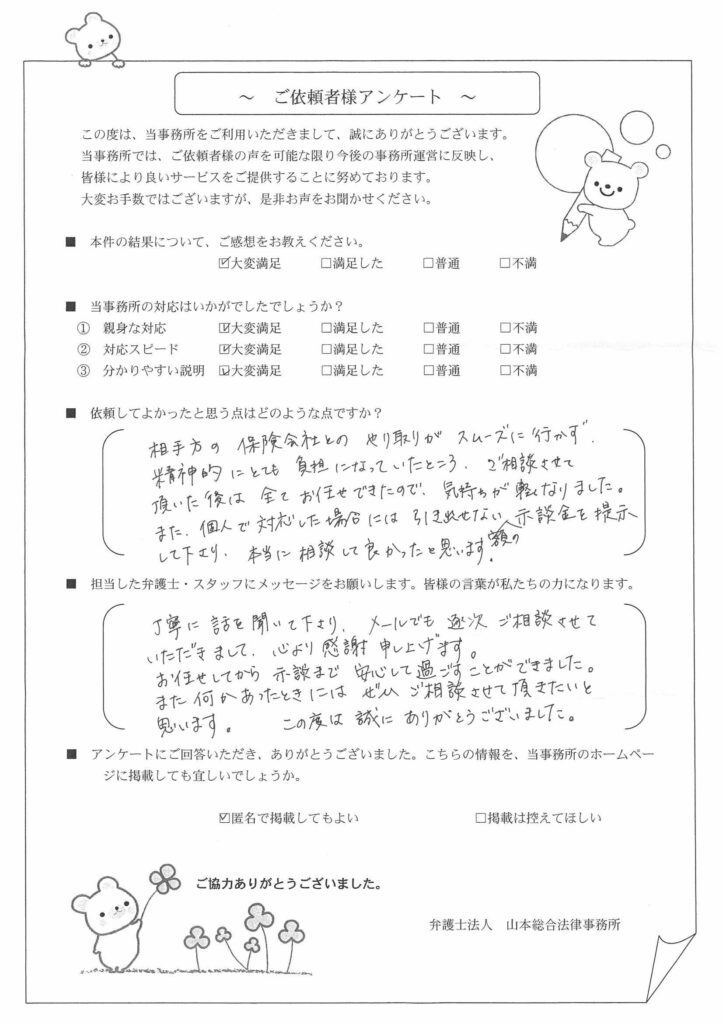 ～　ご依頼者様アンケート　～
この度は、当事務所をご利用いただきまして、誠にありがとうございます。
当事務所では、ご依頼者様の声を可能な限り今後の事務所運営に反映し、
皆様により良いサービスをご提供することに努めております。
大変お手数ではございますが、是非お声をお聞かせください。
■　本件の結果について、ご感想をお教えください。
☑大変満足　□満足した　□普通　□不満
■　当事務所の対応はいかがでしたでしょうか？
①　親身な対応　☑大変満足　□満足した　□普通　□不満
②　対応スピード　☑大変満足　□満足した　□普通　□不満
③　分かりやすい説明　☑大変満足　□満足した　□普通　□不満
■　依頼してよかったと思う点はどのような点ですか？
相手方の保険会社とのやり取りがスムーズに行かず、
精神的にとても負担になっていたところ、ご相談させて
頂いた後は全てお任せできたので、気持ちが軽くなりました。
また、個人で対応した場合には引き出せない額の示談金を提示
して下さり、本当に相談して良かったと思います。
■　担当した弁護士・スタッフにメッセージをお願いします。皆様の言葉が私たちの力になります。
丁寧に話を聞いて下さり、メールでも逐次ご相談させて
いただきまして、心より感謝申し上げます。
お任せしてから示談まで安心して過ごすことができました。
また何かあったときにはぜひご相談させて頂きたいと
思います。　この度は誠にありがとうございました。
■　アンケートにご回答いただき、ありがとうございました。こちらの情報を、当事務所のホームペー
ジに掲載しても宜しいでしょうか。
☑匿名で掲載してもよい　□掲載は控えてほしい
ご協力ありがとうございました。
弁護士法人　山本総合法律事務所